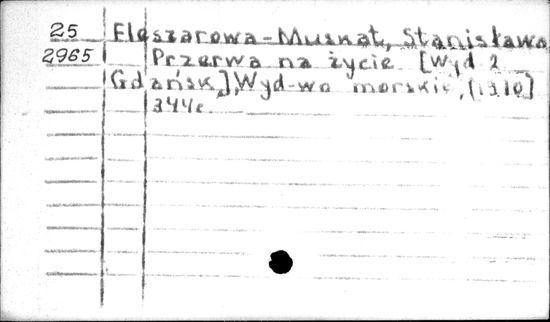 25 Fleszarowa-Muskat, Stanisława
2965 Przerwa na życie [Wyd 2
Gdańsk,] Wyd-wo morskie,
344c.